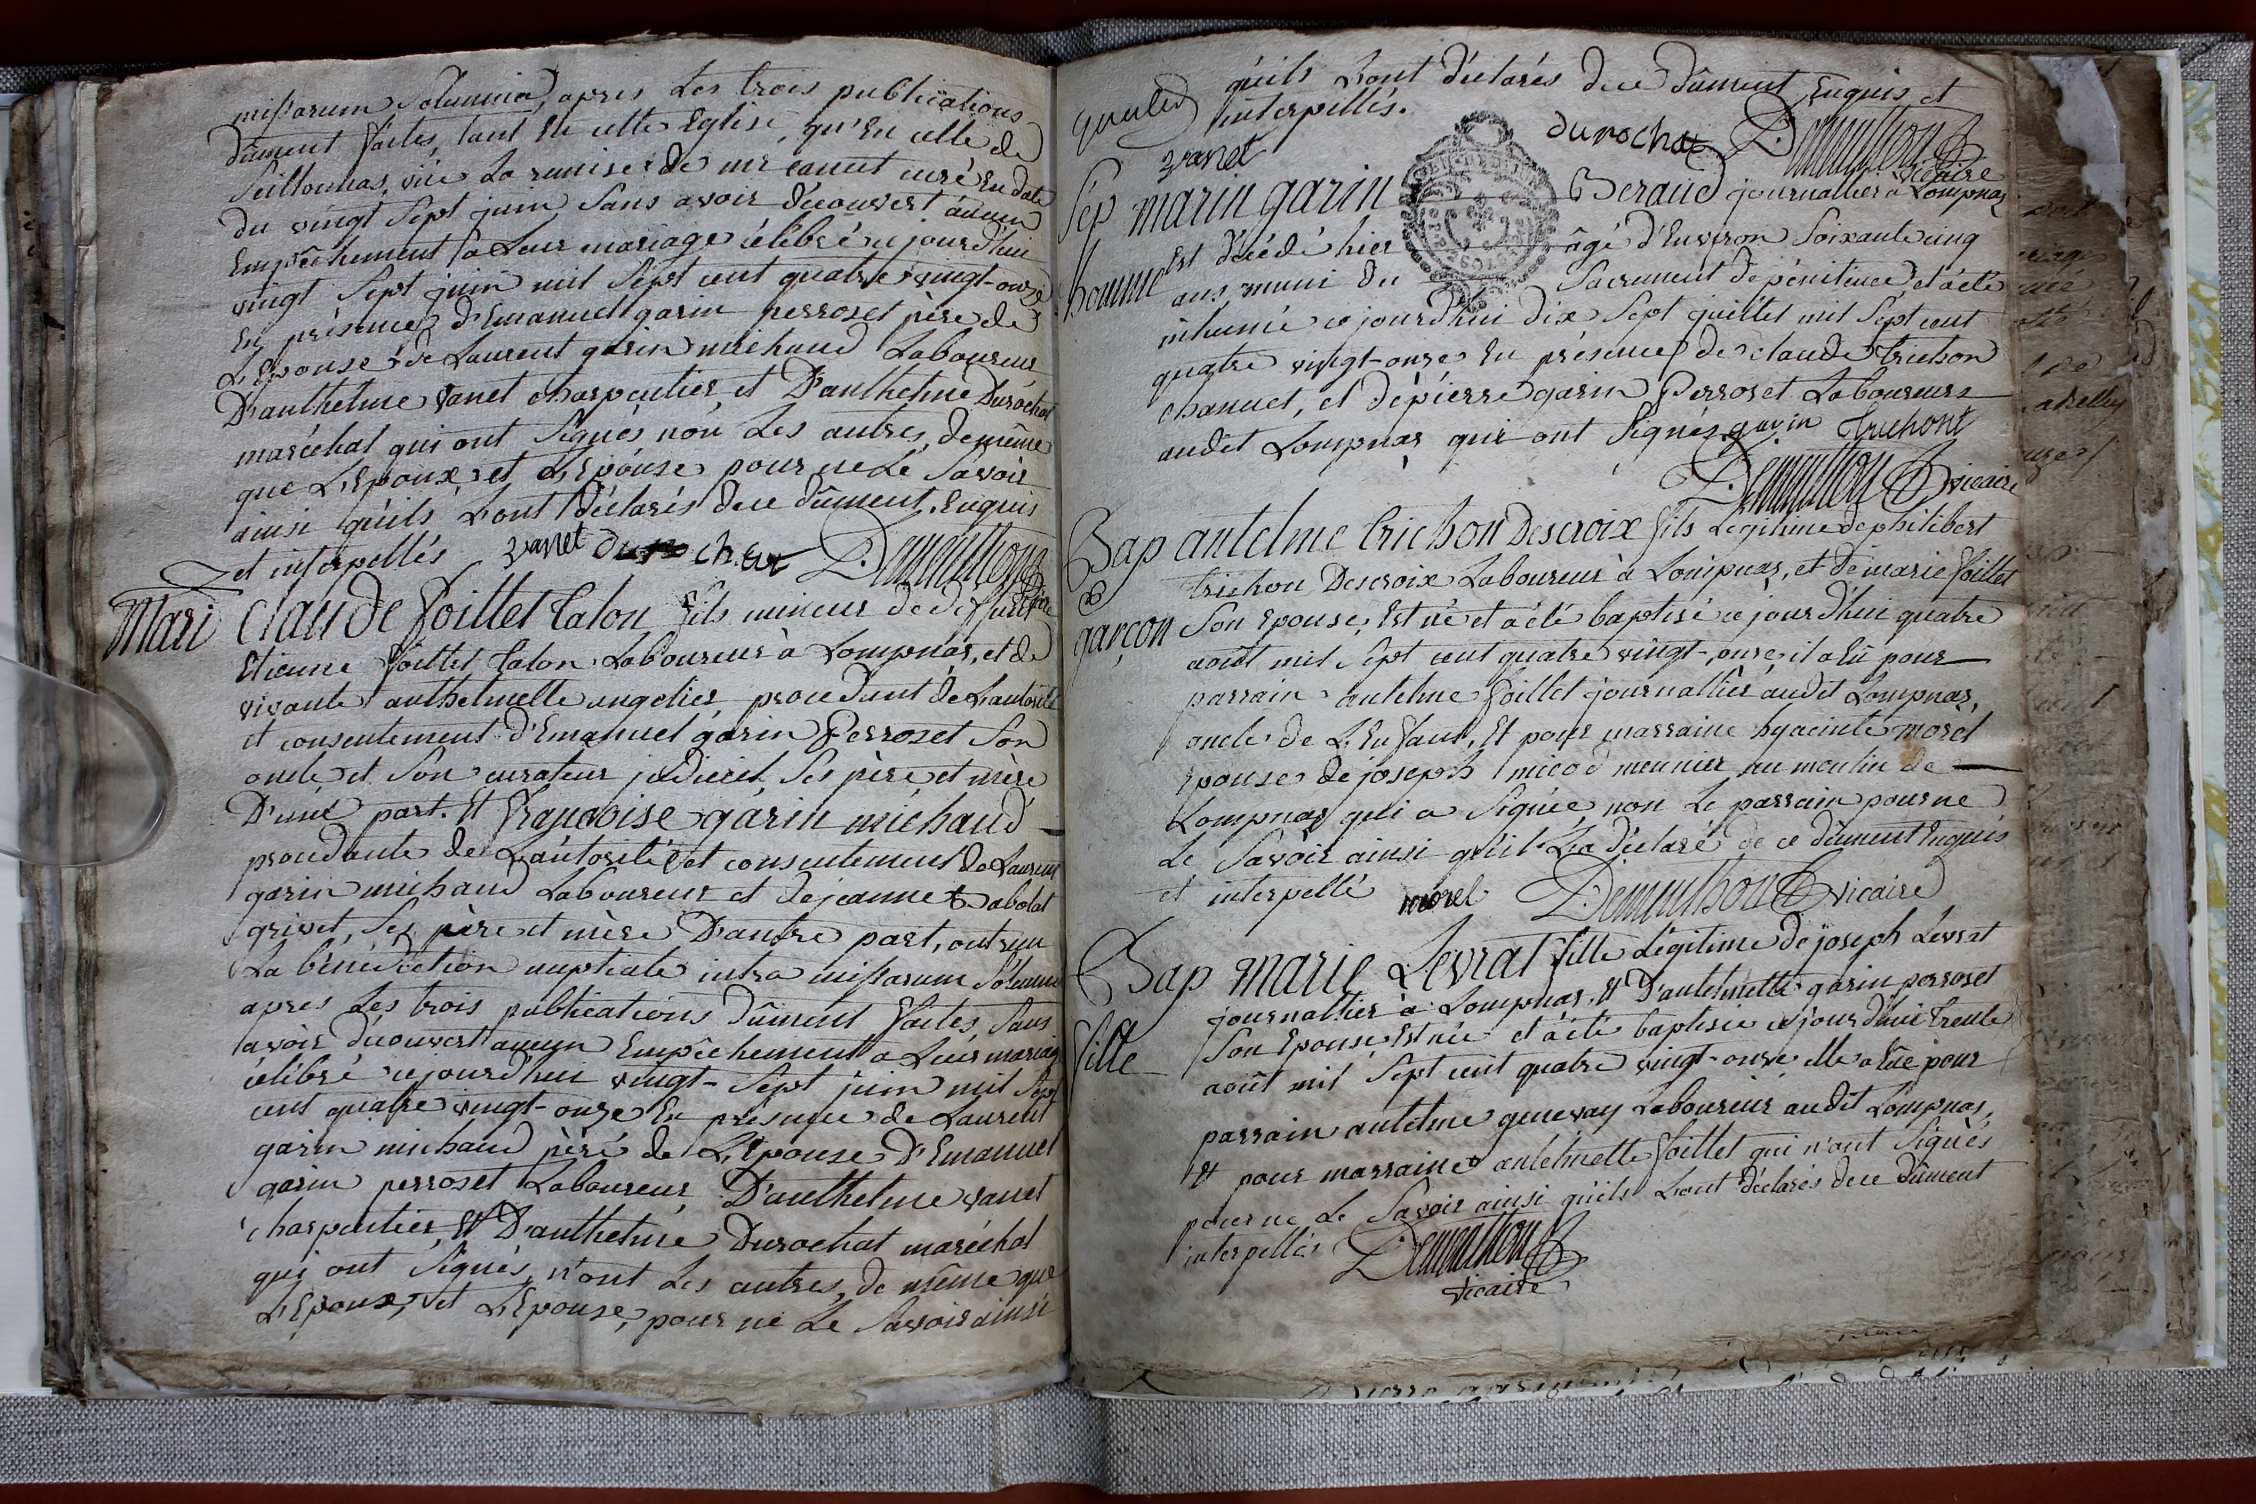 missarum Solumnia, apres Les trois publications
dûment faites, tant En cette Eglise qu'En celle de
Seillonnas, vüe La remise de mr canut curé En date
du vingt Sept juin Sans avoir découvert aucun
Empêchement à Leur mariage célébré ce jourd'hui
vingt Sept juin mil Sept cent quatre vingt-onze
En présence d'Emanuel garin perroset père de
L'Epouse de Laurent garin michaud Laboureur
D'anthelme vanet charpentier, et D'anthelme Durochat
maréchal qui ont Signés non Les autres, de même
que L'Epoux, et L'Epouse pour ne Le Savoir
ainsi qu'ils L'ont déclarés de ce dûment Enquis
et interpellés vanet durochat Demeuthon
vicaire
Mari Claude foillet talon fils mineur de deffunt
Etienne foillet talon Laboureur à Lompnas, et de
vivante anthelmette angelier, procedant de L'autorité
et consentement d'Emanuel garin Perroset Son
oncle et Son curateur judiciel, Ses père et mère
D'une part. Et françoise garin michaud
procedante de L'autorité et consentement de Laurent
garin michaud Laboureur et de jeanne Sabolat
grivet, Ses père et mère D'autre part, ont reçu
La bénédiction nuptiale intra missarum Solemnia
apres Les trois publications dûment faites, Sans
avoir découvert aucun Empêchement à Leur mariage
célébré ce jourd'hui vingt-Sept juin mil Sept
cent quatre vingt-onze En présence de Laurent
garin michaud père de L'Epouse D'Emanuel
garin perroset Laboureur, D'anthelme vanet
charpentier, Et D'anthelme Durochat maréchal
qui ont Signés, n'ont Les autres, de même que
L'Epoux, et L'Epouse, pour ne Le Savoir ainsi
qu'ils L'ont déclarés de ce dûment Enquis et
interpellés.
vanet durochat Demeuthon
vicaire
Sép marin garin Beraud journallier à Lompnas
homme Est décédé hier âgé d'Environ Soixante cinq
ans, muni du Sacrement de pénitence et a été
inhumé ce jourd'hui dix Sept juillet mil Sept cent
quatre vingt-onze En présence de claude trichon
chanuet, et de pierre garin Perroset Laboureurs
audit Lompnas qui ont Signés. garin trichont
Demeuthon vicaire
Bap antelme trichon Descroix fils Légitime de philibert
trichon Descroix Laboureur à Lompnas, et de marie foillet
garçon Son Epouse, Est né et a été baptisé ce jourd'hui quatre
août mil Sept cent quatre vingt-onze, il a Eû pour
parrain antelme foillet journallier audit Lompnas,
oncle de L'Enfant, Et pour marraine hyacinte morel
Epouse de joseph micod meunier au moulin de
Lompnas qui a Signée, non Le parrain pour ne
Le Savoir ainsi qu'il L'a déclaré de ce dûment Enquis
et interpellé morel Demeuthon vicaire
Bap marie Levrat fille Légitime de joseph Levrat
journallier à Lompnas, Et D'antelmette garin perroset
fille Son Epouse, Est née et a été baptisée ce jourd'hui trente
août mil Sept cent quatre vingt-onze, elle a Eûe pour
parrain antelme genevay Laboureur audit Lompnas,
Et pour marraine antelmette foillet qui n'ont Signés
pour ne Le Savoir ainsi qu'ils L'ont déclarés de ce dûment
interpellés Demeuthon
vicaire